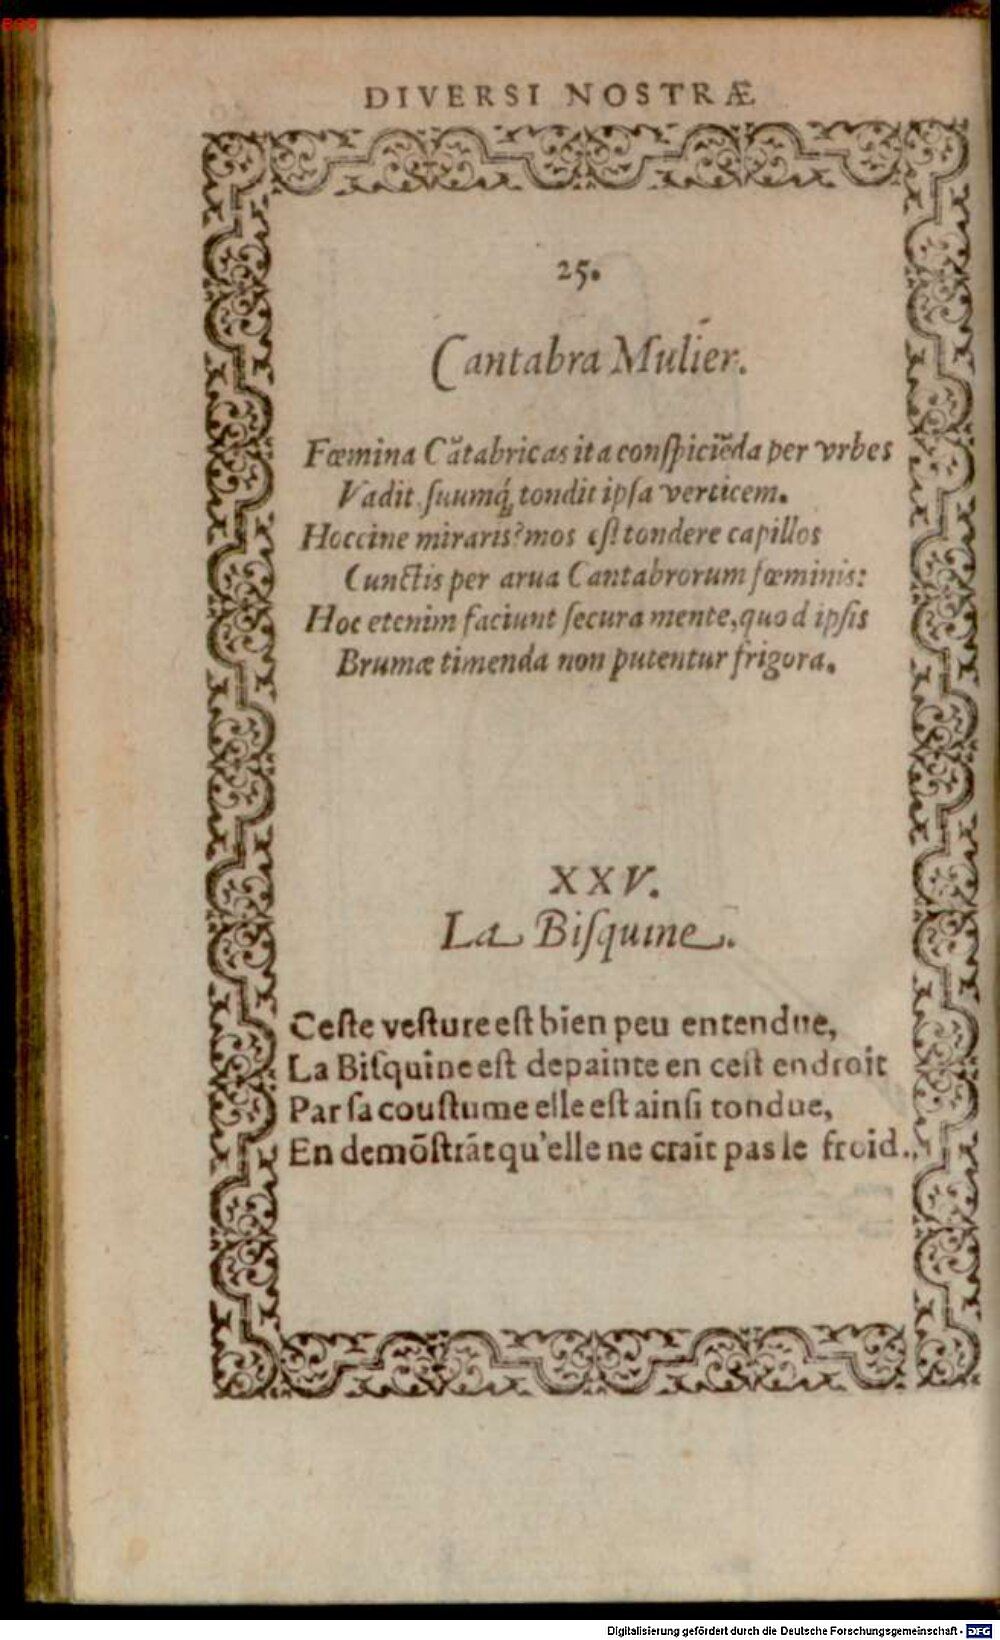 DIVERSI NOSTRÆ
25.
Cantabra Mulier.
Fœmina Cātabricas ita conſpiciēda per vrbes
Vadit, ſuumq́; tondit ipſa verticem.
Hoccine miraris? mos eſt tondere capillos
Cunctis per arua Cantabrorum fœminis:
Hoc etenim faciunt ſecura mente, quod ipſis
Brumæ timenda non putentur frigora.
XXV.
La Biſquine.
Ceſte veſture eſt bien peu entendue,
La Biſquine eſt depainte en ceſt endroit
Par ſa couſtume elle eſt ainſi tondue,
En demōſtrāt qu'elle ne craīt pas le froid.
Digitalisierung gefördert durch die Deutsche Forschungsgemeinschaft - DFG